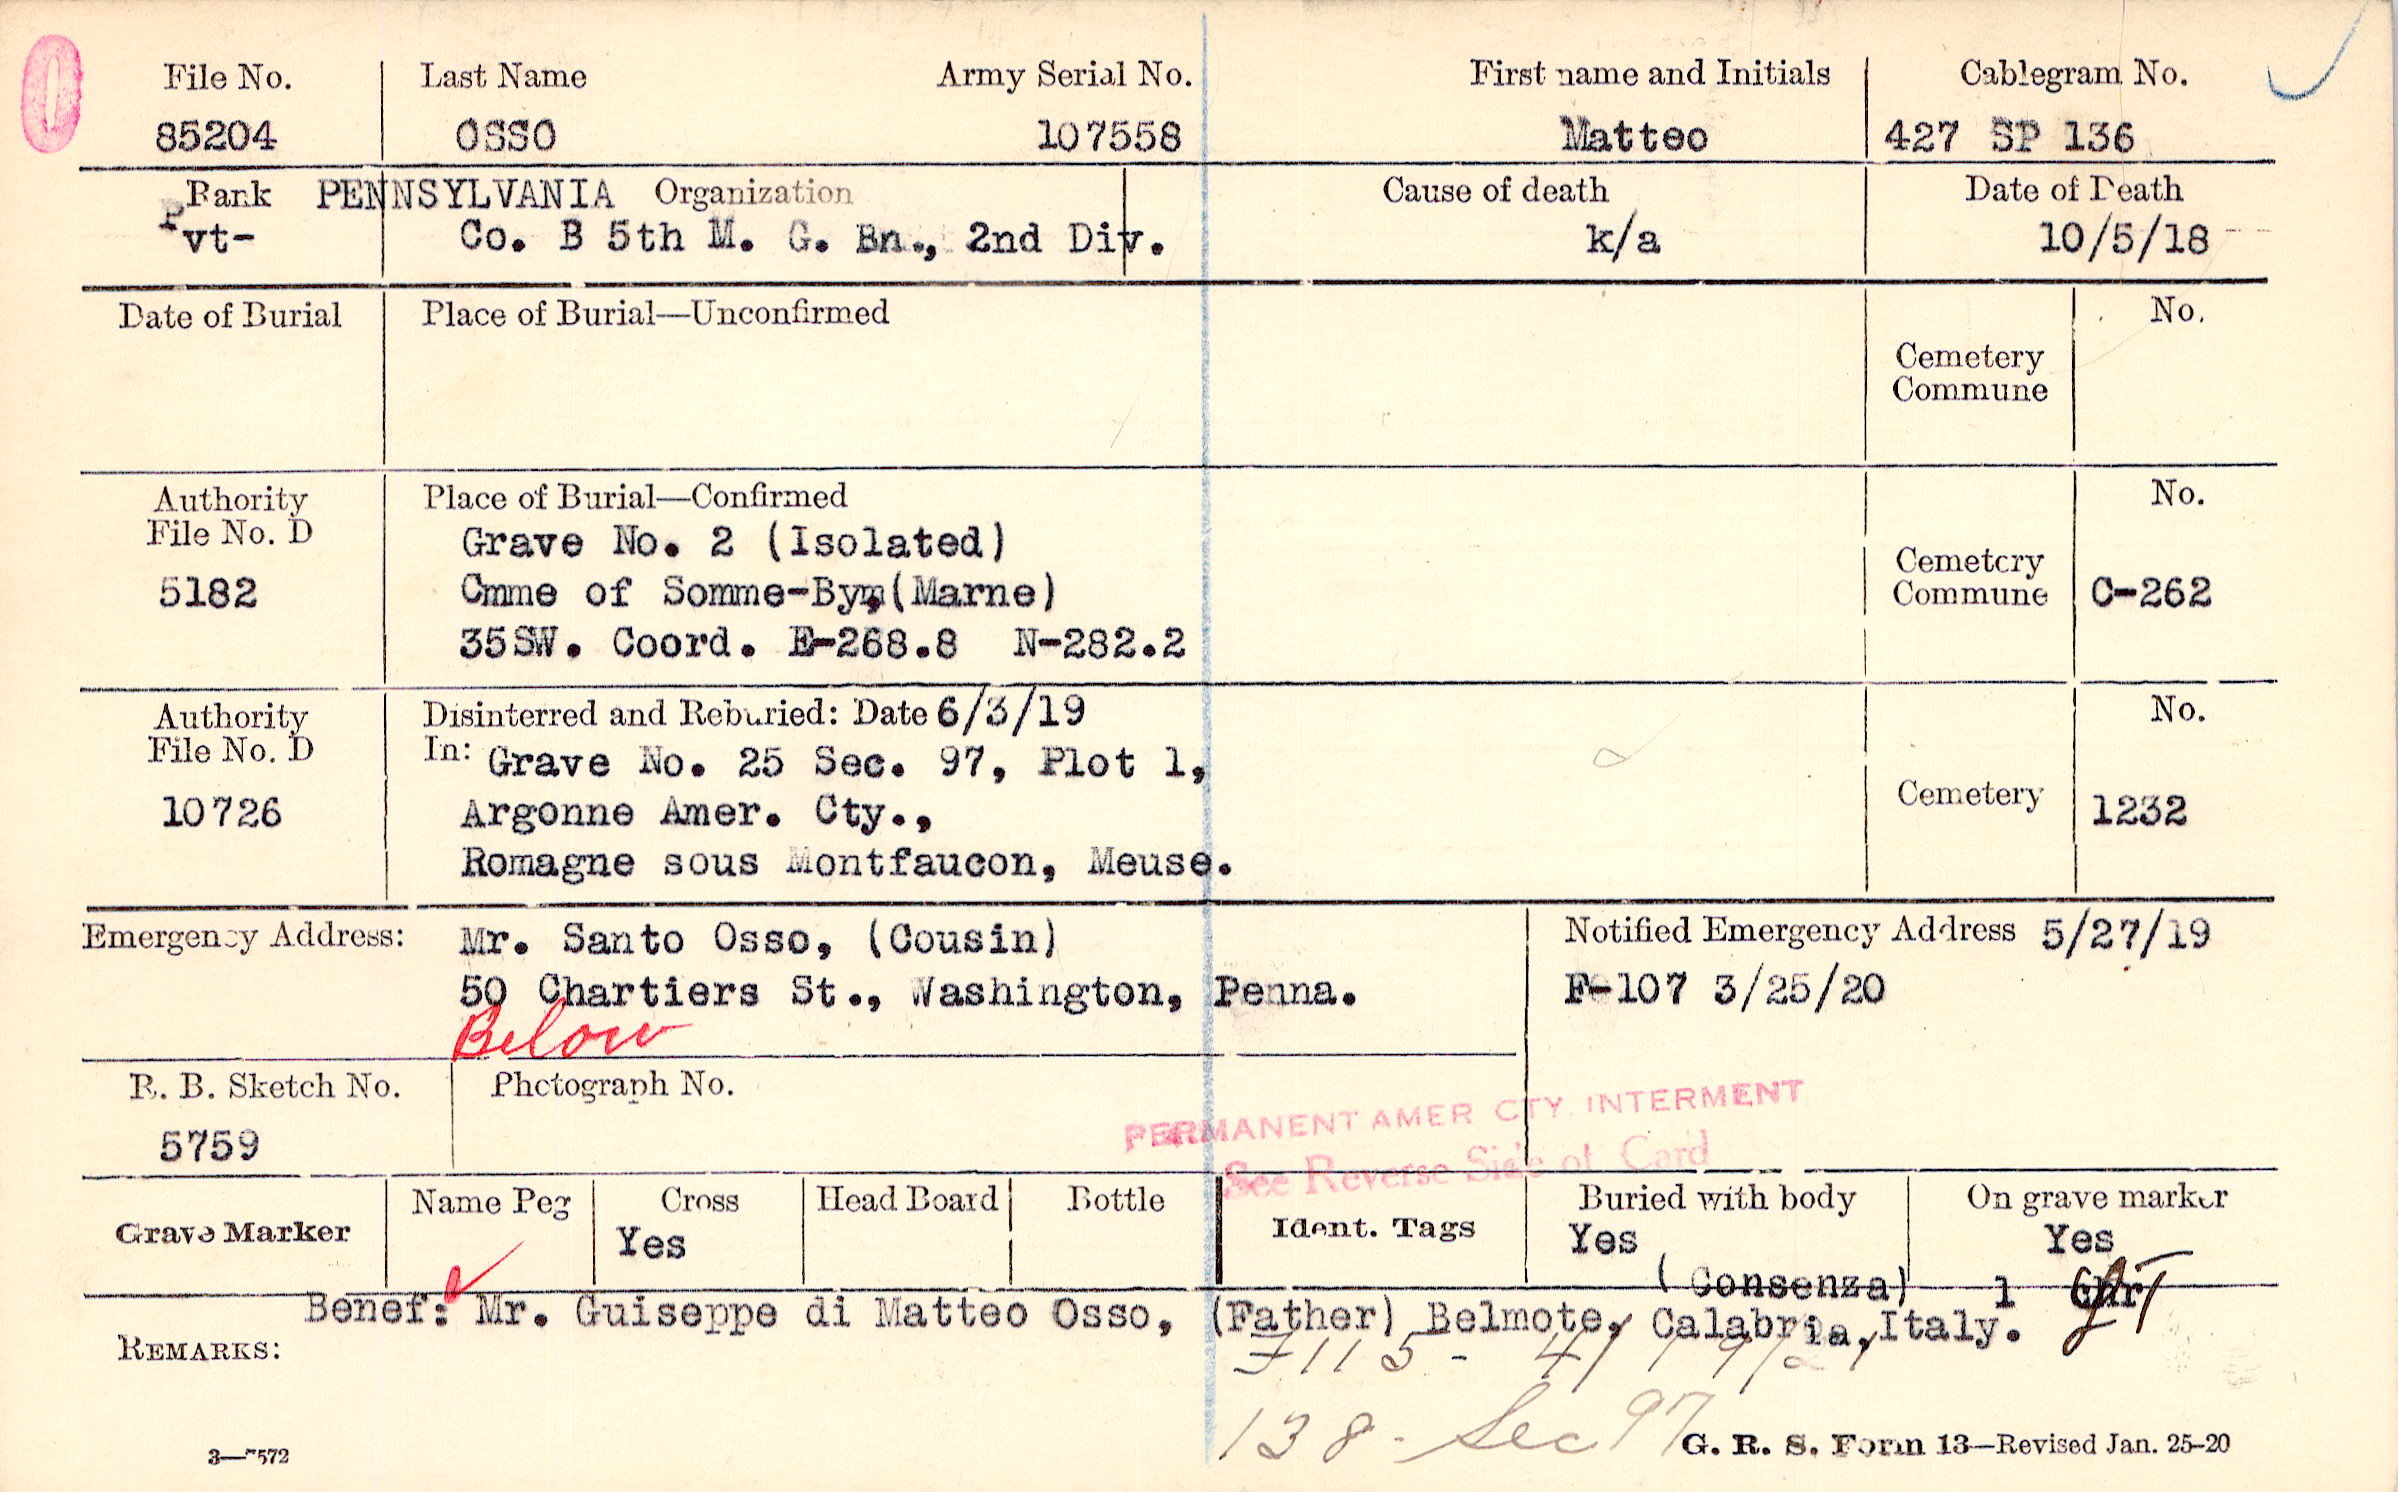 File No. Last Name Army Serial No. First name and Initials Cablegram No.
85204 OSSO 107558 Matteo 427 SP 136
Rank PENNSYLVANIA Organization Cause of death Date of Death
Pvt- Co. B 5th M. G. Bn., 2nd Div. k/a 10/5/18
Date of Burial Place of Burial—Unconfirmed No.
Cemetery
Commune
Authority Place of Burial—Confirmed No.
File No. D Grave No. 2 (Isolated)
5182 Cmme of Somme-Bym(Marne) Cemetery
Commune C-262
35SW. Coord. E-268.8 N-282.2
Authority Disinterred and Reburied: Date 6/3/19 No.
File No. D In: Grave No. 25 Sec. 97, Plot 1,
10726 Argonne Amer. Cty., Cemetery 1232
Romagne sous Montfaucon, Meuse.
Emergency Address: Mr. Santo Osso, (Cousin) Notified Emergency Address 5/27/19
50 Chartiers St., Washington, Penna. F-107 3/25/20
Below
R. B. Sketch No. Photograph No.
5759
PERMANENT AMER CTY. INTERMENT
See Reverse Side of Card
Grave Marker Name Peg Cross Head Board Bottle Ident. Tags Buried with body On grave marker
Yes Yes Yes
(Consenza) 1
Benef: Mr. Guiseppe di Matteo Osso, (Father) Belmote, Calabria, Italy.
REMARKS:
138 - Sec 97
3—7572 G. R. S. Form 13—Revised Jan. 25-20